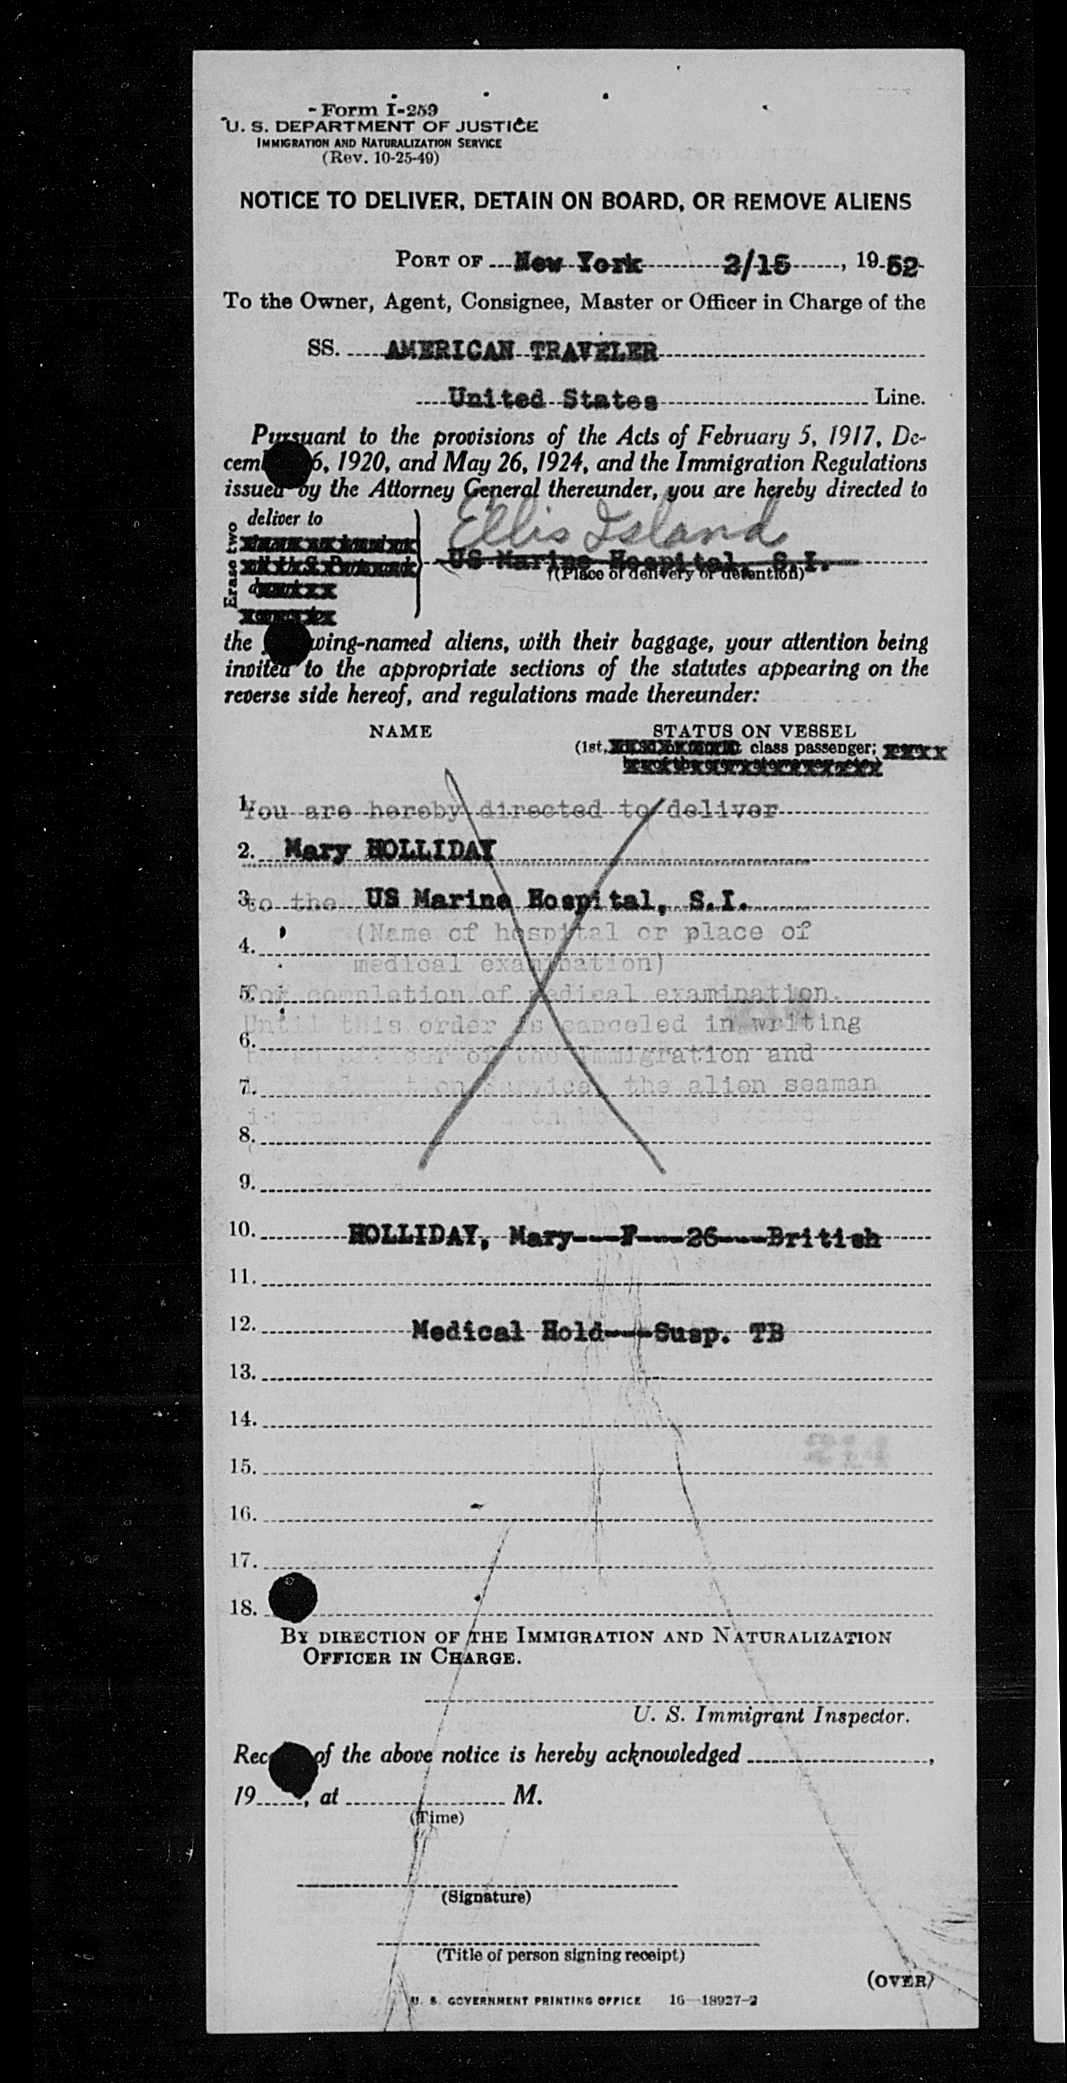 Form I-259
U. S. DEPARTMENT OF JUSTICE
IMMIGRATION AND NATURALIZATION SERVICE
(Rev. 10-25-49)
NOTICE TO DELIVER, DETAIN ON BOARD, OR REMOVE ALIENS
PORT OF New York 2/15, 1952
To the Owner, Agent, Consignee, Master or Officer in Charge of the
SS. AMERICAN TRAVELER
United States Line.
Pursuant to the provisions of the Acts of February 5, 1917, De-
cem 6, 1920, and May 26, 1924, and the Immigration Regulations
issued by the Attorney General thereunder, you are hereby directed to
deliver to
Ellis Island
Erase two
US Marine Hospital, S.I.
(Place of delivery or detention)
the wing-named aliens, with their baggage, your attention being
invited to the appropriate sections of the statutes appearing on the
reverse side hereof, and regulations made thereunder:
NAME STATUS ON VESSEL
(1st, class passenger;
1. You are hereby directed to deliver
2. Mary HOLLIDAY
3. to the US Marine Hospital, S.I.
(Name of hospital or place of
4.
medical examination)
5. for completion of medical examination.
Until this order is canceled in writing
6. officer of the Immigration and
7. Service, the alien seaman
8.
9.
10. HOLLIDAY, Mary---F---26---British
11.
12. Medical Hold---Susp. TB
13.
14.
15.
16.
17.
18.
BY DIRECTION OF THE IMMIGRATION AND NATURALIZATION
OFFICER IN CHARGE.
U. S. Immigrant Inspector.
Rec of the above notice is hereby acknowledged ,
19 , at M.
(Time)
(Signature)
(Title of person signing receipt)
(OVER)
U. S. GOVERNMENT PRINTING OFFICE 16—18927-2